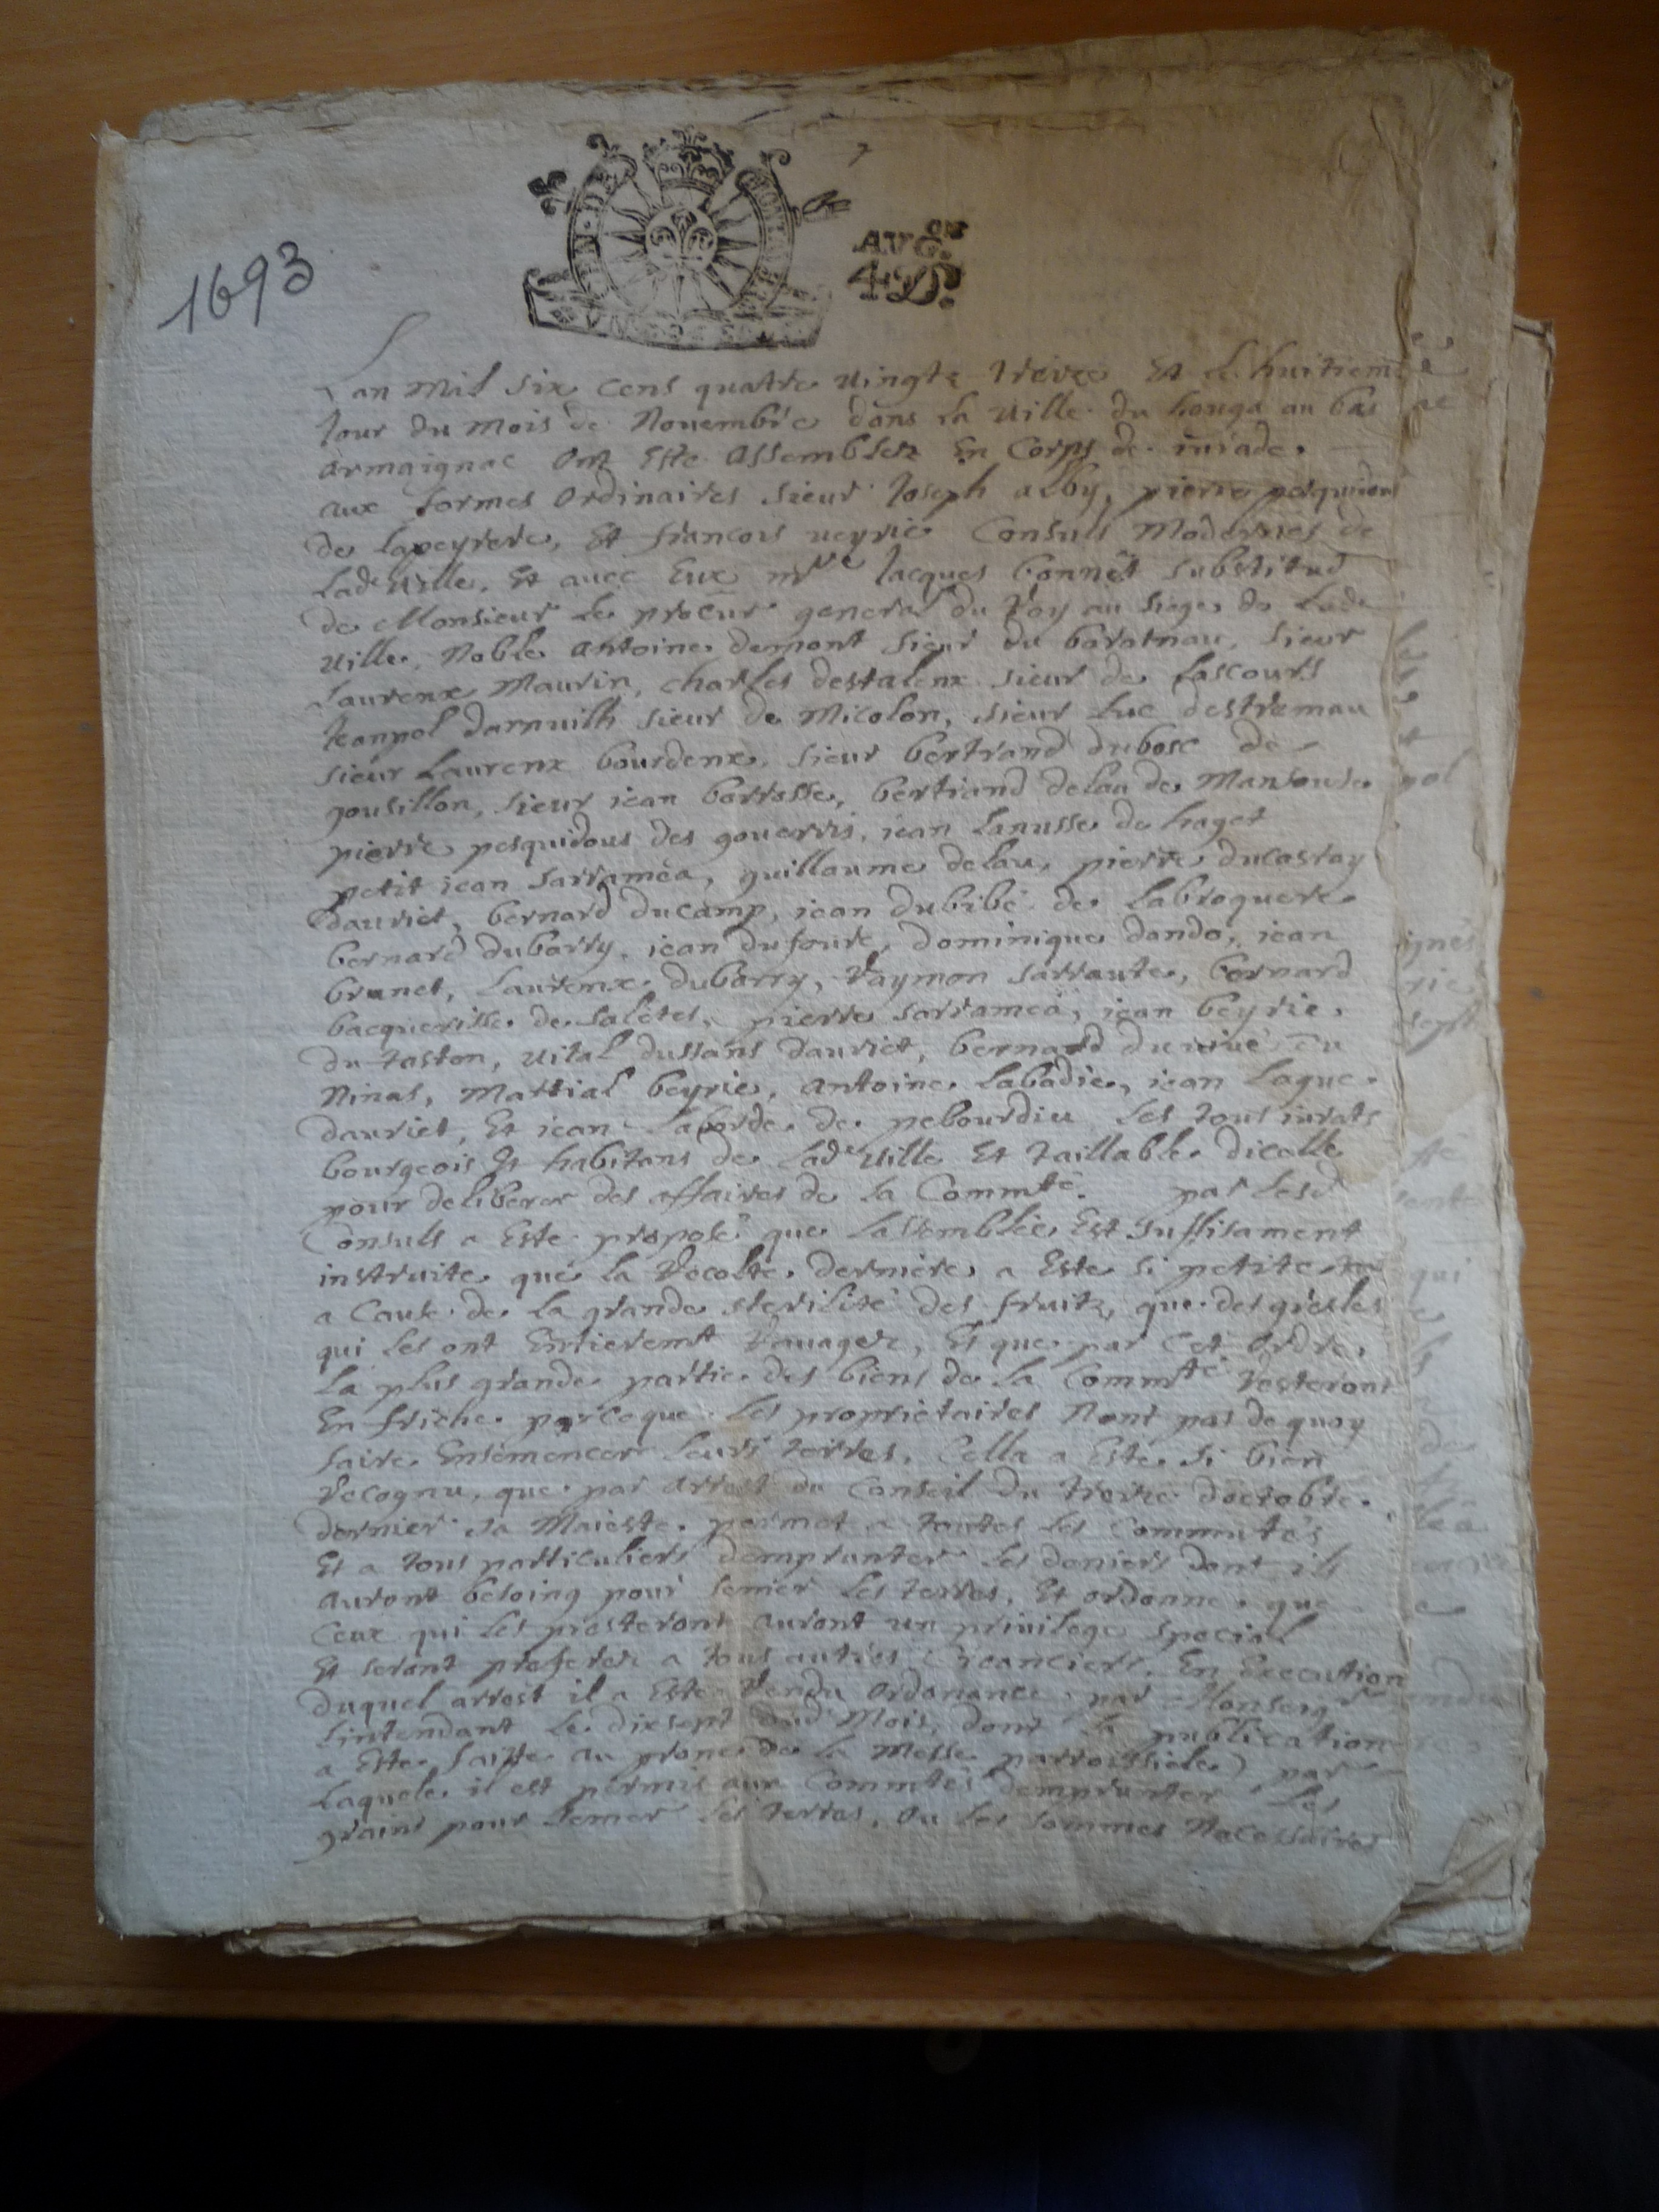 1693
AVG.on
4 D.
Lan Mil six cens quatre vingtz treize Et le huitieme
Jour du mois de Nouembre dans la Ville du houga au bas
armaignac Ont Este Assemblez En Corps de iurade.
aux formes Ordinaires sieur Joseph alby, pierre pesquidous
de lapeyrere, Et francois veyrie Consuls Modernes de
Lade Ville, Et auec Eux Jacques bonnet substitud
de Monsieur le procur general du Roy au siege de Lade
Ville, Noble Antoine demont sieur du baratnau, sieur
Laurenx Maurin, charles destalenx sieur de Lascours
Jeanpol darnuilh sieur de Micolon, sieur Luc destremau
sieur Laurenx bourdenx, sieur bertrand dubosc de
pousillon, sieur iean barrosse, bertrand delau de Mansouse
pierre pesquidous des gouerris, iean lanusse de haget
petit iean sarraméa, guillaume delau, pierre ducastay
dauriet, bernard ducamp, iean dubibé de Labroquere
bernard dubarry, iean dufourc, dominique dando, iean
brunet, Laurenx dubarry, Raymon sarraute, bernard
bacquerisse de saletes, pierre sarramea, iean beyrie
du taston, vital dussans dauriet, bernard du
Ninas, Martial beyrie, antoine labadie, iean Lague
dauriet, Et iean Laborde de pebourdieu Les tous iurats
bourgeois Et habitans de Lade Ville Et taillable dicelle
pour deliberer des affaires de la Commte. par lesd
Consuls a Este proposé que Lassemblée Est suffisament
instruite que la Recolte derniere a Este si petite
a Cause de la grande sterilité des fruitz, que des gresles
qui les ont Entieremt Rauagez, Et que par Cet Ordre,
La plus grande partie des biens de la Commte Resteront
En friche parceque les proprietaires Nont pas de quoy
faire Ensemencer leurs terres, Cella a Este si bien
Recognu, que par arrest du Conseil du treize doctobre
dernier sa Maieste permet a toutes les Commutés
Et a tous particuliers demprunter les deniers dont ils
auront besoing pour semer les terres, Et ordonne que
Ceux qui les presteront auront un priuilege special
Et seront preferez a tous autres Creanciers. En Execution
duquel arrest il a Este Rendu Ordonance par Monseigr
Lintendant le dixsept dud Mois, dont la publication
a Este faitte au prone de la Messe parroissiele) par
Laquele il est permis aux Commtés demprunter Les
grains pour semer les terres, Ou les sommes Necessaires